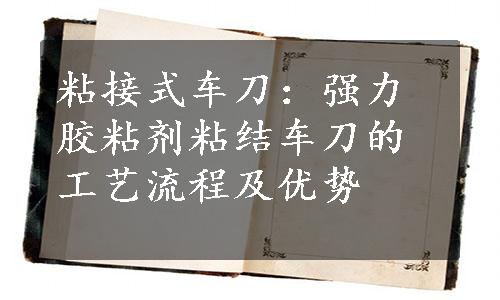 粘接式车刀：强力
胶粘剂粘结车刀的
工艺流程及优势